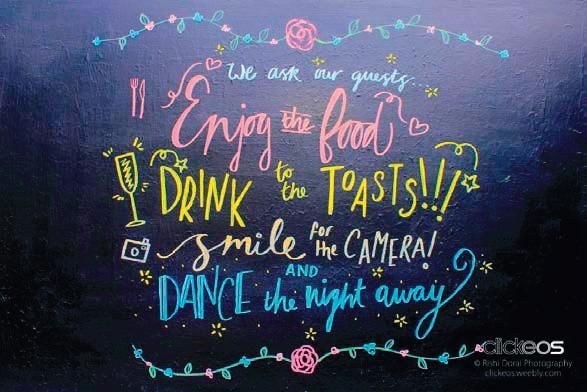 We ask our guests...
Enjoy the food
DRINK to the TOASTS!!!
smile for the CAMERA!
AND
DANCE the night away
clickeos
© Rishi Dorai Photography
clickeos.weebly.com